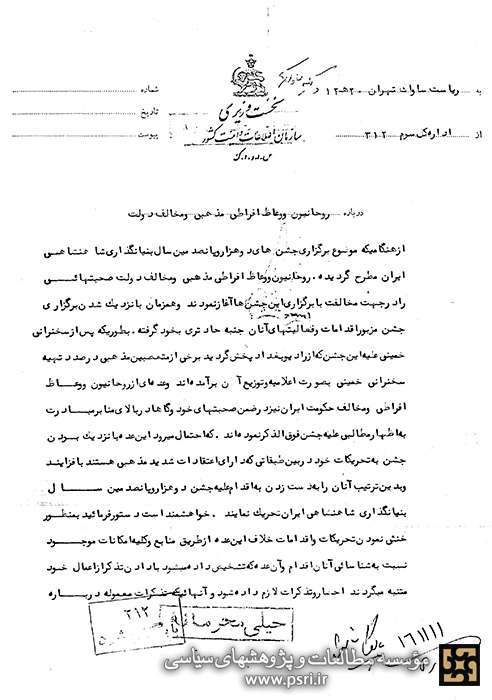 به ریاست ساواک تهران ۲۰ هـ ۱۲
شماره
نخست وزیری
تاریخ
از اداره کل سوم ۳۱۲
سازمان اطلاعات و امنیت کشور
پیوست
س.ا.و.ا.ک
درباره روحانیون و وعاظ افراطی مذهبی و مخالف دولت
از هنگامیکه موضوع برگزاری جشن های دو هزار و پانصد مین سال بنیانگذاری شاهنشاهی
ایران مطرح گردیده، روحانیون و وعاظ افراطی مذهبی و مخالف دولت صحبتهائی
را در جهت مخالفت با برگزاری این جشن ها آغاز نمودند و همزمان با نزدیک شدن برگزاری
جشن مزبور اقدامات و فعالیتهای آنان جنبه حاد تری بخود گرفته. بطوریکه پس از سخنرانی
خمینی علیه این جشن که از رادیو بغداد پخش گردید برخی از متعصبین مذهبی در صدد تهیه
سخنرانی خمینی بصورت اعلامیه و توزیع آن برآمده اند و عده ای از روحانیون و وعاظ
افراطی و مخالف حکومت ایران نیز در ضمن صحبتهای خود و گاهاً در بالای منابر مبادرت
به اظهار مطالبی علیه جشن فوق الذکر نموده اند. که احتمال میرود این عده با نزدیک بودن
جشن به تحریکات خود در بین طبقاتی که دارای اعتقادات شدید مذهبی هستند بافزایند
و بدین ترتیب آنان را به دست زدن به اقدام علیه جشن دو هزار و پانصد مین سال
بنیانگذاری شاهنشاهی ایران تحریک نمایند. خواهشمند است دستور فرمائید بمنظور
خنثی نمودن تحریکات و اقدامات خلاف این عده از طریق منابع و کلیه امکانات موجود
نسبت به شناسائی آنان اقدام و آن عده که تشخیص داده میشود با دادن تذکر از اعمال خود
متنبه میگردند احضار و تذکرات لازم داده شود و آنهائیکه تذکرات معموله درباره
۳۱۲
خیلی محرمانه
بایگانی شود
۱۶/۱۱/۱
مؤسسه مطالعات و پژوهشهای سیاسی
www.psri.ir